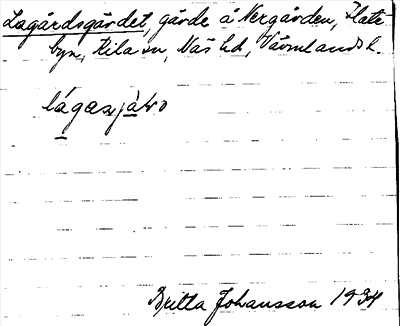 Lagårdsgärdet, gärde å Nergården, Flate-
byn, Kila sn, Näs hd, Värmlands l.
Britta Johansson 1934